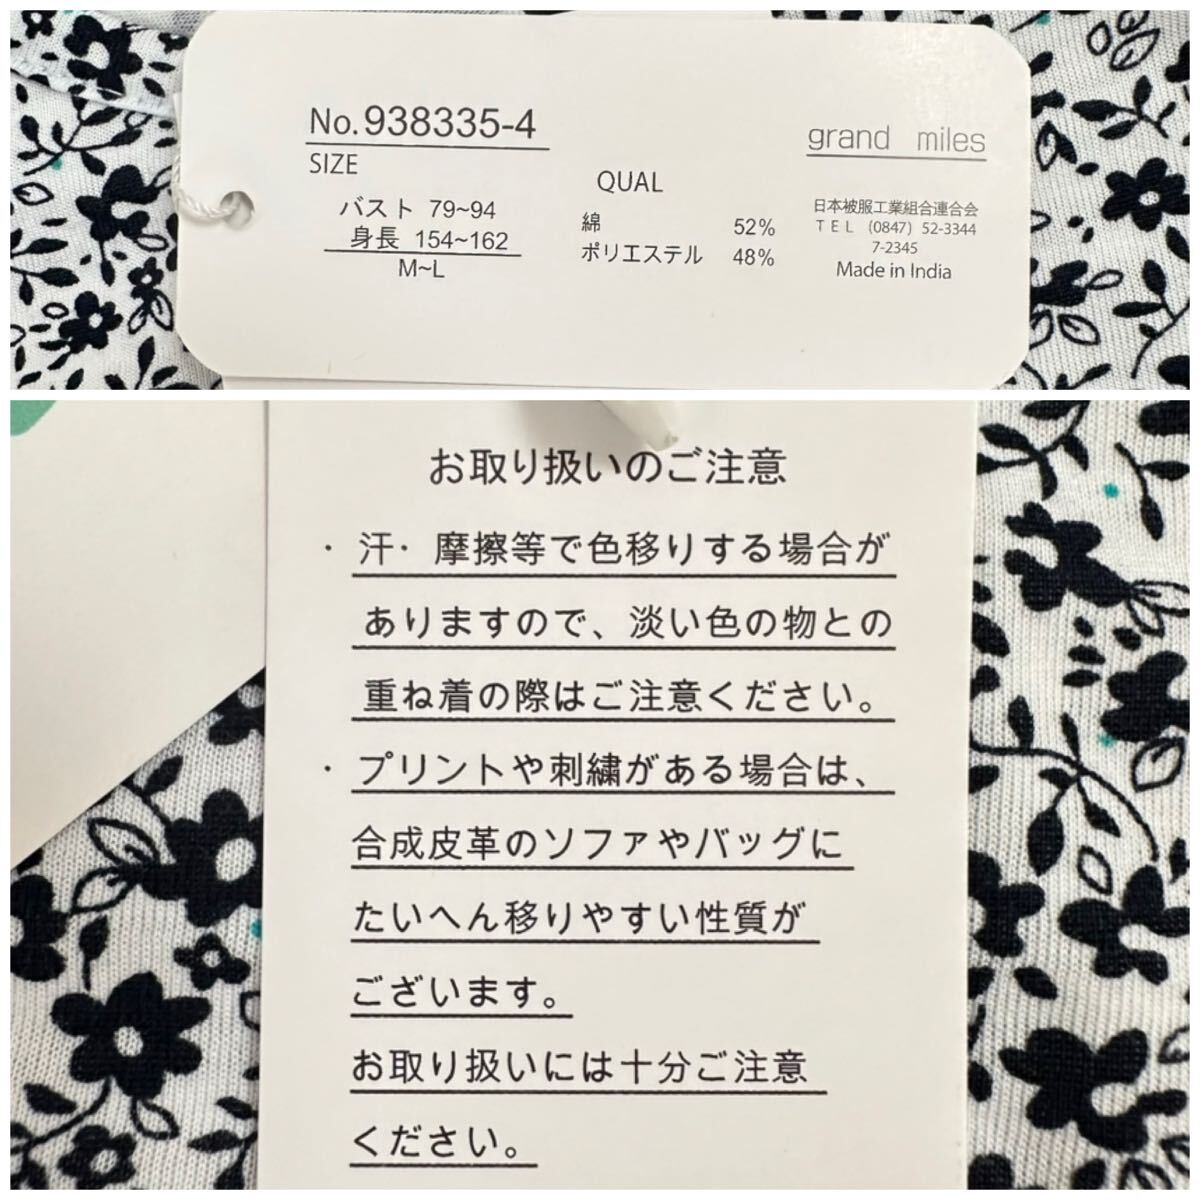 No.938335-4
SIZE
バスト 79~94
身長 154~162
M~L
QUAL
綿 52%
ポリエステル 48%
grand miles
日本被服工業組合連合会
TEL (0847) 52-3344
7-2345
Made in India
お取り扱いのご注意
・汗・摩擦等で色移りする場合が
ありますので、淡い色の物との
重ね着の際はご注意ください。
・プリントや刺繍がある場合は、
合成皮革のソファやバッグに
たいへん移りやすい性質が
ございます。
お取り扱いには十分ご注意
ください。